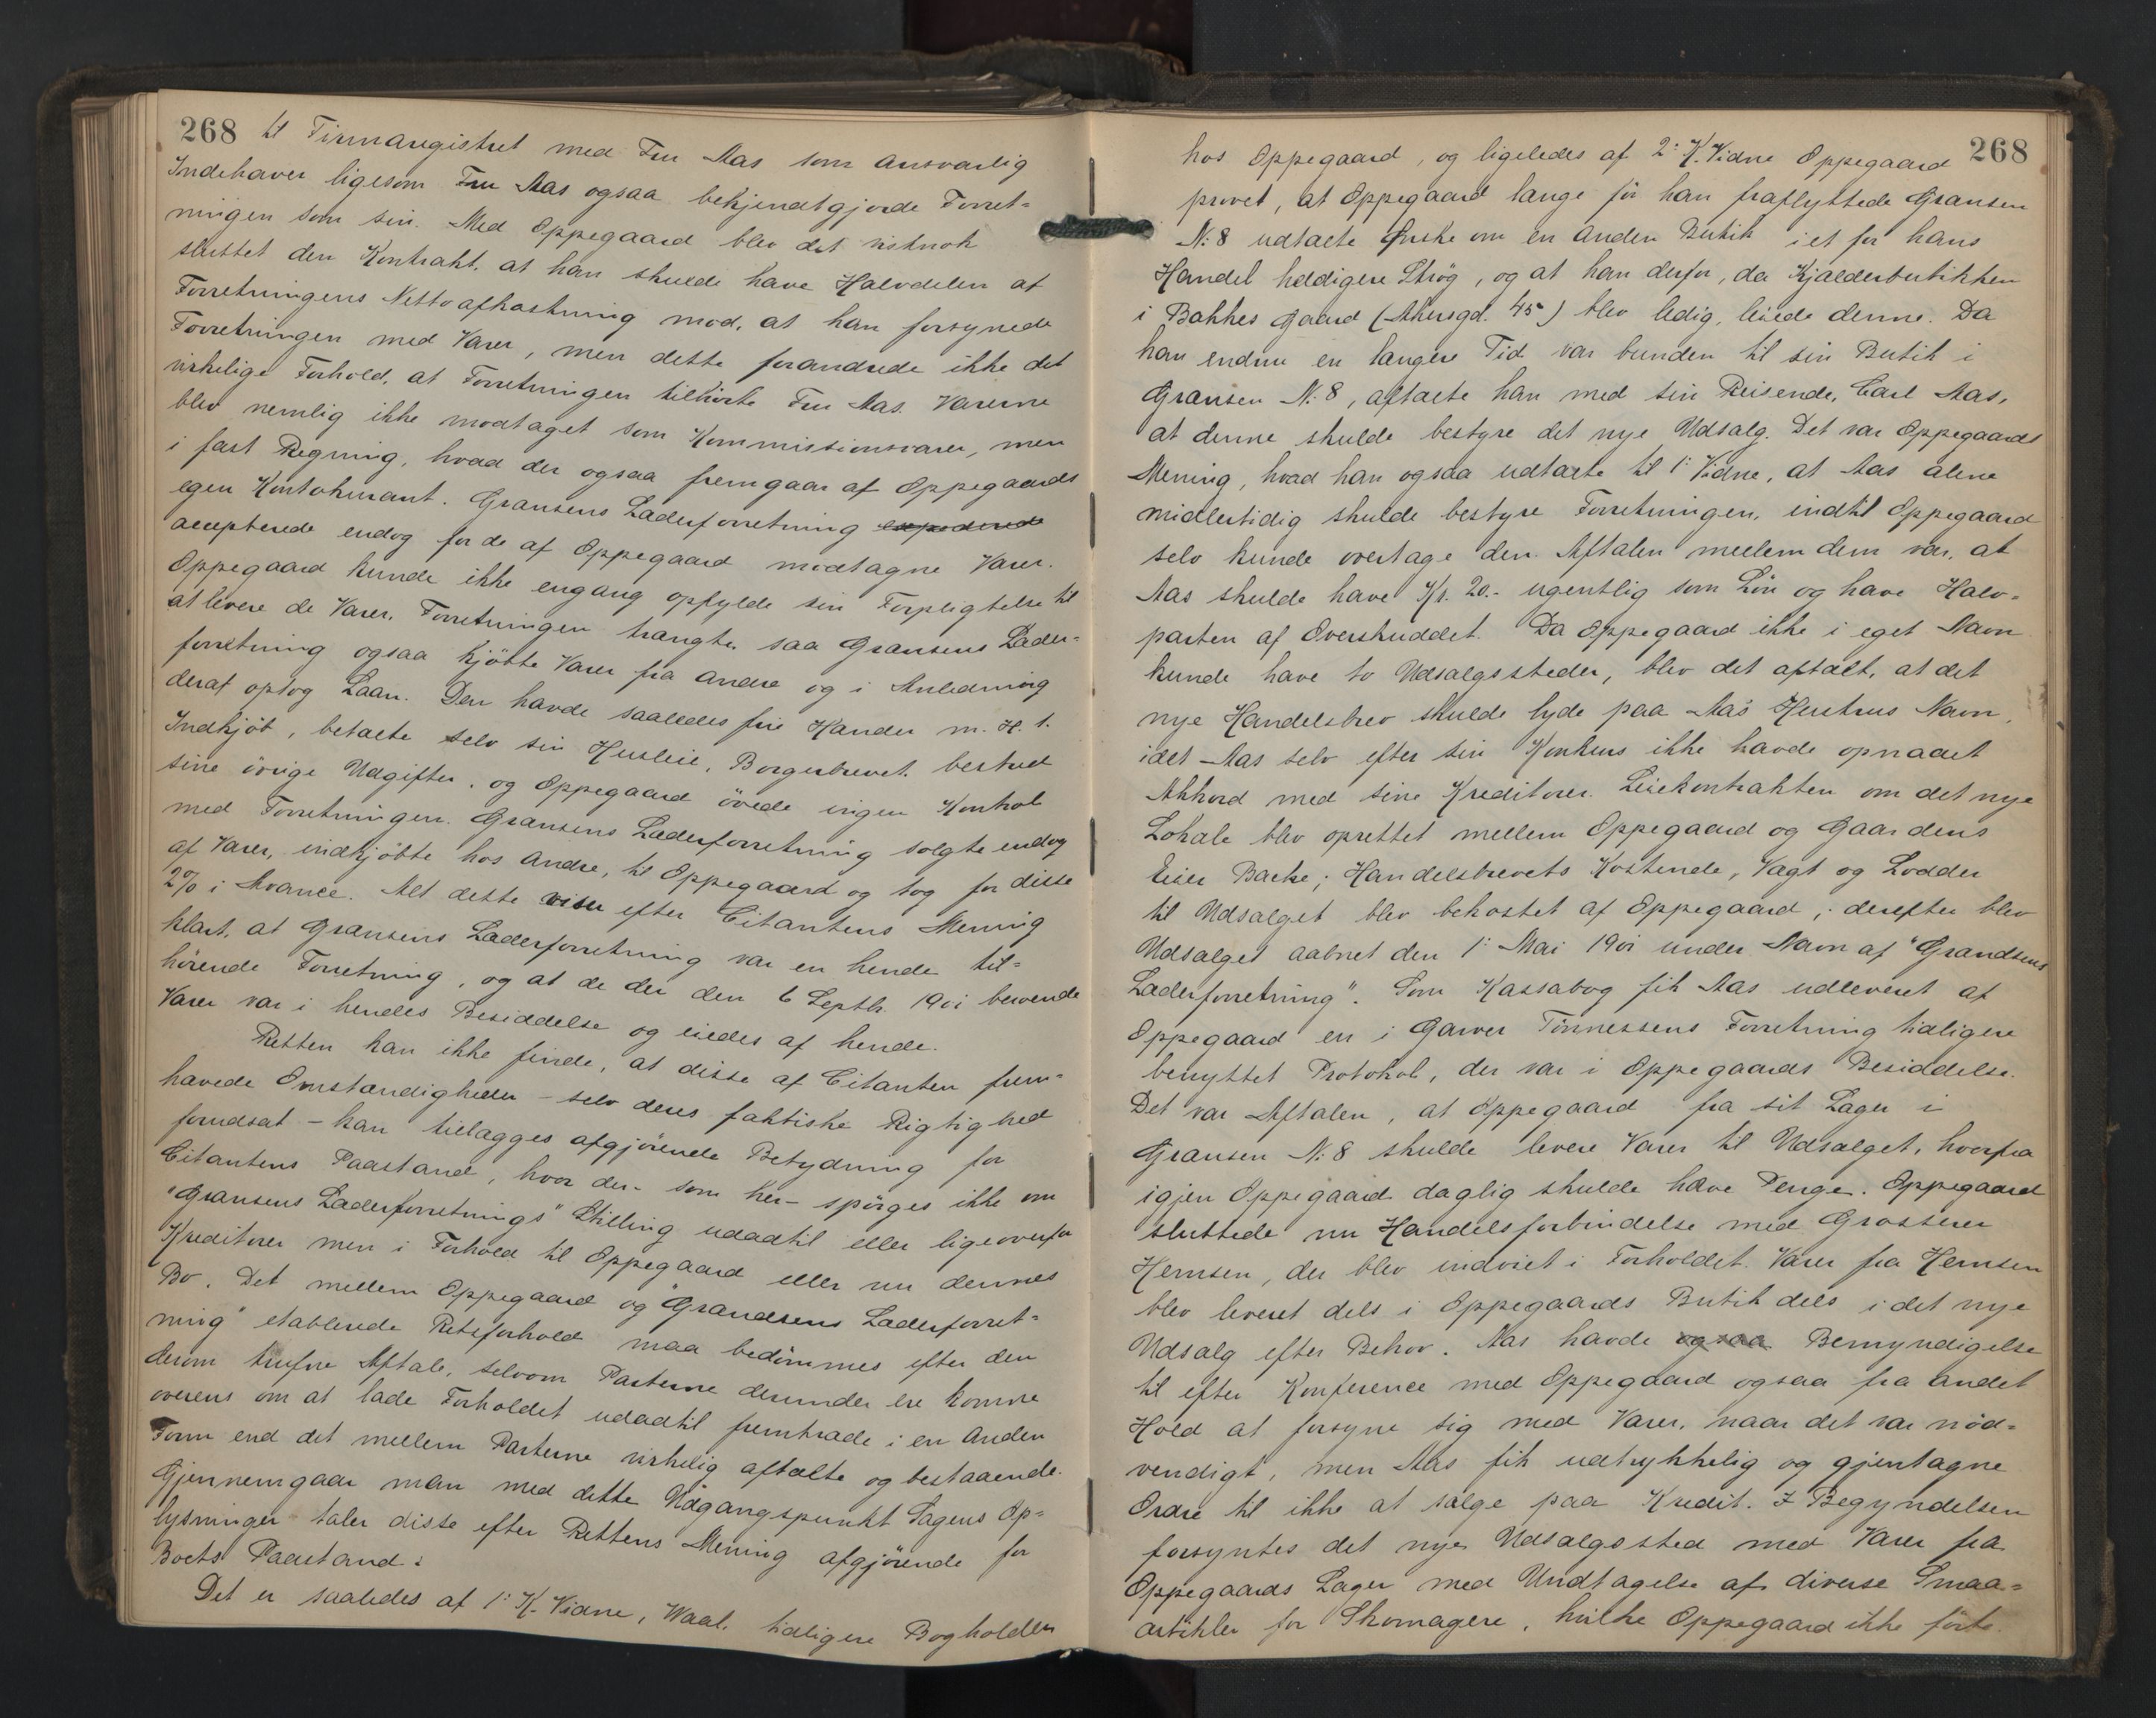 268 til Firmaregistret med Fru Aas som ansvarlig
Indehaver ligesom Fru Aas ogsaa bekjendtgjorde Forret-
ningen som sin. Med Oppegaard blev det vistnok
sluttet den Kontrakt, at han skulde have Halvdelen af
Forretningens Nettoafkastning mod, at han forsynede
Forretningen med Varer, men dette forandrede ikke det
virkelige Forhold, at Forretningen tilhörte Fru Aas. Varerne
blev nemlig ikke modtaget som Kommissionsvarer, men
i fast Regning, hvad der ogsaa fremgaar af Oppegaards
egen Kontokurant. Grænsens Læderforretning expederede
accepterede endog for de af Oppegaard modtagne Varer.
Oppegaard kunde ikke engang opfylde sin Forpligtelse til
at levere de Varer, Forretningen trængte, saa Grænsens Læder-
forretning ogsaa kjöbte Varer fra andre og i Anledning
deraf optog Laan. Den havde saaledes frie Hænder m. H. t.
Indkjöb, betalte selv sin Husleie, Borgerbrevet, bestred
sine övrige Udgifter, og Oppegaard övede ingen Kontrol
med Forretningen. Grænsens Læderforretning solgte endog
af Varer, indkjöbte hos andre, til Oppegaard og tog for disse
2% i Avance. Alt dette viser efter Citantens Mening
klart, at Grænsens Læderforretning var en hende til-
hörende Forretning, og at de der den 6 Septb. 1901 beroende
Varer var i hendes Besiddelse og eiedes af hende.
Retten kan ikke finde, at disse af Citanten frem-
hævede Omstændigheder – selv deres faktiske Rigtighed
forudsat – kan tillægges afgjörende Betydning for
Citantens Paastand, hvor der – som her – spörges ikke om
"Grænsens Læderforretnings" Stilling udadtil eller ligeoverfor
Kreditorer men i Forhold til Oppegaard eller nu dennes
Bo. Det mellem Oppegaard og "Grændsens Læderforret-
ning" etablerede Retsforhold maa bedömmes efter den
derom trufne Aftale, selvom Parterne derunder ere komne
overens om at lade Forholdet udadtil fremtræde i en anden
Form end det mellem Parterne virkelig aftalte og bestaaende.
Gjennemgaar man med dette Udgangspunkt Sagens Op-
lysninger taler disse efter Rettens Mening afgjörende for
Boets Paastand:
Det er saaledes af 1: K. Vidne, Waal, tidligere Bogholder
268
hos Oppegaard, og ligeledes af 2: K. Vidne Oppegaard
provet, at Oppegaard længe för han fraflyttede Grænsen
N: 8 udtalte Ønske om en anden Butik i et for hans
Handel heldigere Strög, og at han derfor, da Kjælderbutikken
i Bakkes Gaard (Akersgd. 45) blev ledig, leiede denne. Da
han endnu en længere Tid var bunden til sin Butik i
Grænsen N: 8, aftalte han med sin Reisende, Carl Aas,
at denne skulde bestyre det nye Udsalg. Det var Oppegaards
Mening, hvad han ogsaa udtalte til 1: Vidne, at Aas alene
midlertidig skulde bestyre Forretningen, indtil Oppegaard
selv kunde overtage den. Aftalen mellem dem var, at
Aas skulde have Kr. 20.- ugentlig som Lön og have Halv-
parten af Overskuddet. Da Oppegaard ikke i eget Navn
kunde have to Udsalgssteder, blev det aftalt, at det
nye Handelsbrev skulde lyde paa Aas's Hustrus Navn,
idet Aas selv efter sin Konkurs ikke havde opnaaet
Akkord med sine Kreditorer. Leiekontrakten om det nye
Lokale blev oprettet mellem Oppegaard og Gaardens
Eier Bakke; Handelsbrevets Kostende, Vægt og Lodder
til Udsalget blev bekostet af Oppegaard; derefter blev
Udsalget aabnet den 1: Mai 1901 under Navn af "Grændsens
Læderforretning". Som Kassabog fik Aas udleveret af
Oppegaard en i Garver Tönnessens Forretning tidligere
benyttet Protokol, der var i Oppegaards Besiddelse.
Det var Aftalen, at Oppegaard fra sit Lager i
Grænsen N: 8 skulde levere Varer til Udsalget, hvorfra
igjen Oppegaard daglig skulde hæve Penge. Oppegaard
sluttede nu Handelsforbindelse med Grosserer
Hemsen, der blev indviet i Forholdet. Varer fra Hemsen
blev leveret dels i Oppegaards Butik dels i det nye
Udsalg efter Behov. Aas havde ogsaa Bemyndigelse
til efter Konference med Oppegaard ogsaa fra andet
Hold at forsyne sig med Varer, naar det var nöd-
vendigt, men Aas fik udtrykkelig og gjentagne
Ordre til ikke at sælge paa Kredit. I Begyndelsen
forsyntes det nye Udsalgssted med Varer fra
Oppegaards Lager med Undtagelse af diverse Smaa-
artikler for Skomagere, hvilke Oppegaard ikke förte.